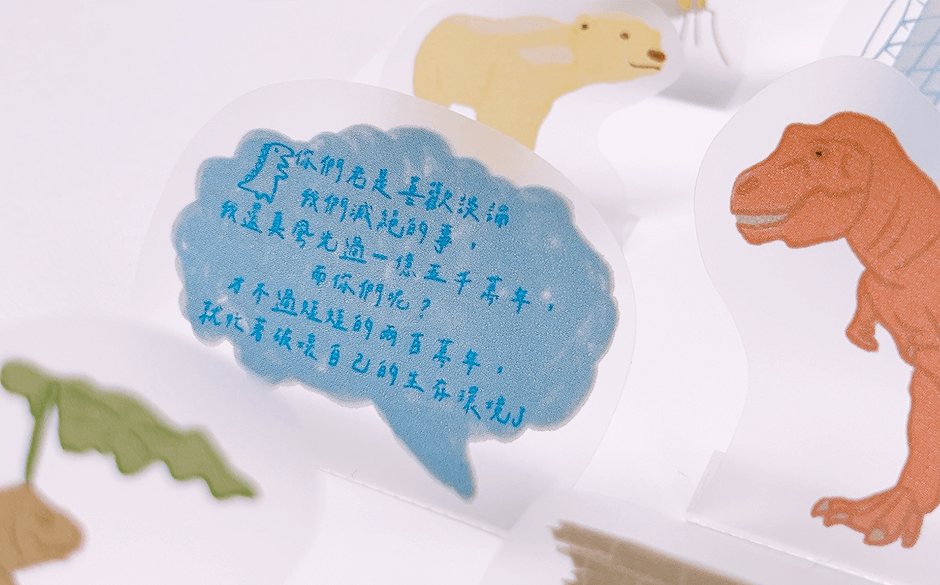 「你們老是喜歡談論
我們滅絕的事，
我還真風光過一億五千萬年，
而你們呢？
才不過短短的兩百萬年，
就忙著破壞自己的生存環境」